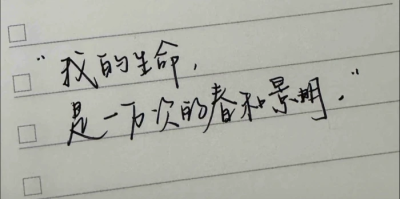 “我的生命，
是一万次的春和景明.”